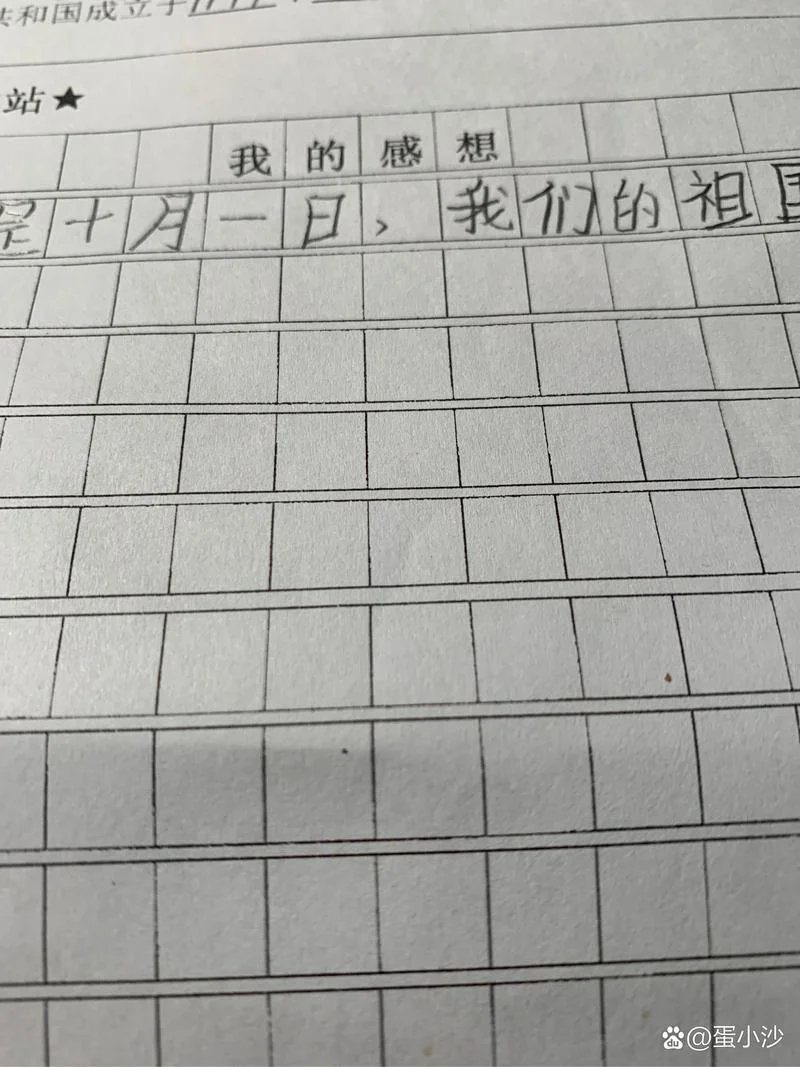 共和国成立于
站★
我的感想
是十月一日，我们的祖国
@蛋小沙